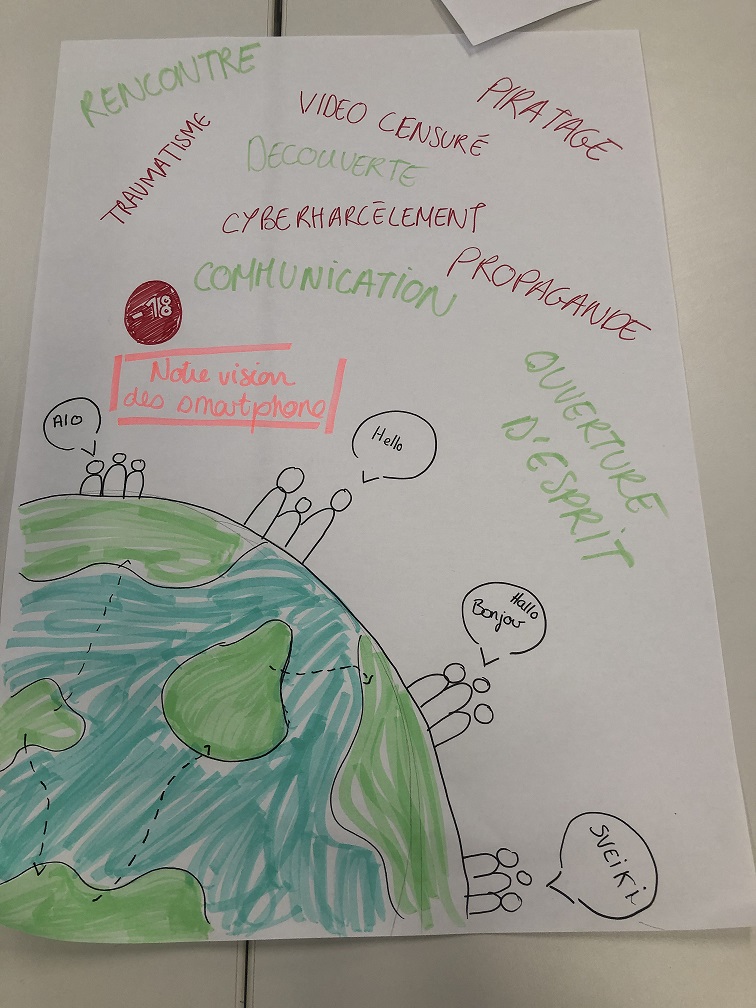 RENCONTRE
VIDEO CENSURÉ
PIRATAGE
TRAUMATISME
DECOUVERTE
CYBERHARCÈLEMENT
COMMUNICATION
PROPAGANDE
-18
Notre vision
des smartphone
OUVERTURE
D'ESPRIT
Alo
Hello
Hallo
Bonjour
SVEIKI